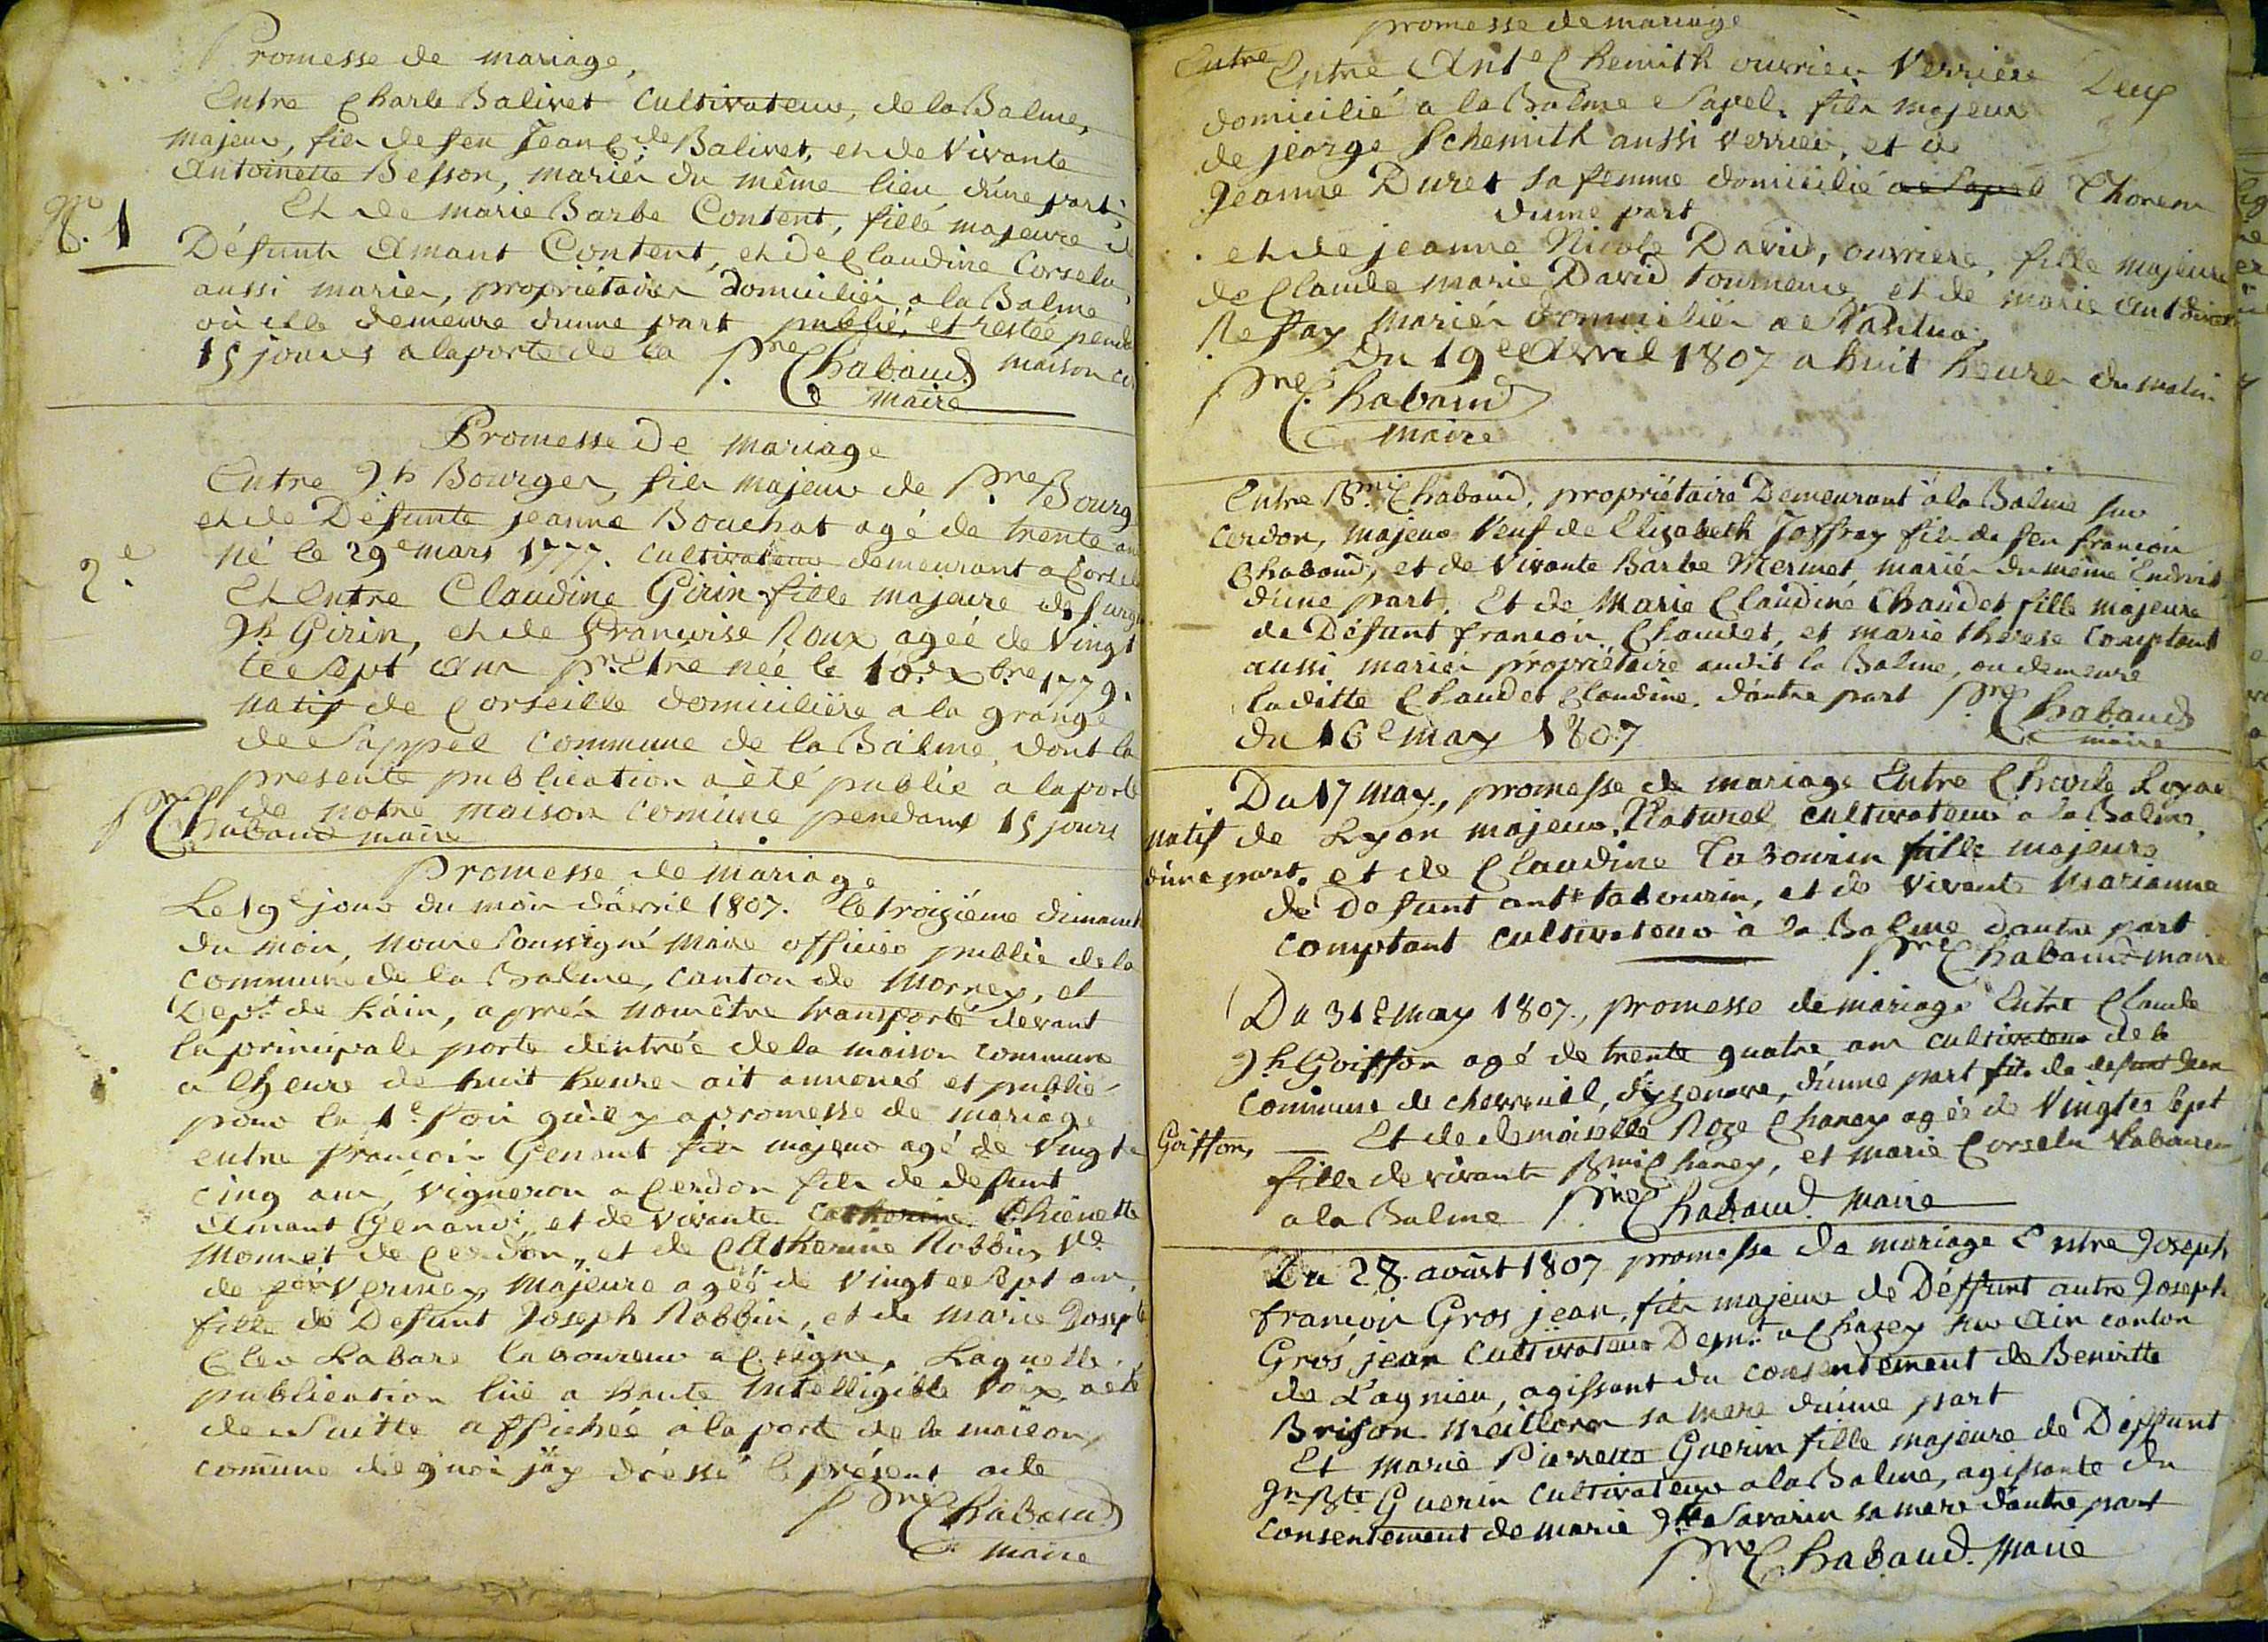 Promesse de mariage,
Entre Charle Balivet cultivateur, de la Balme,
majeur, fils de feu Jean Cde Balivet, et de vivante
Antoinette Besson, mariés du même lieu, d'une part;
Et de marie Barbe Content, fille majeure de
N° 1
Défunt Amant Content, et de Claudine Corselu,
aussi mariés, propriétaires domiciliés a la Balme
où elle demeure d'unne part publié, et restée penda
15 jours a la porte de la maison co
Pre Chabaud
maire
Promesse de mariage
Entre Jh Bourger, fils majeur de Pre Bourg
et de Défunte jeanne Bouchat agé de trente an
2e
né le 29e mars 1777. cultivateur demeurant a Corseil
Et Entre Claudine Girin fille majeure de
Jh Girin, et de françoise Roux agée de Vingt
te sept ans pr Etre née le 10e xbre 1779.
natif de Corseille domicilière a la grange
de Sappel commune de la Balme, dont la
presente publication a été publié a la porte
de notre maison comune pendant 15 jours
Pre Chabaud maire
Promesse de mariage
Le 19e jour du mois d'avril 1807. le troizième dimanch
du mois, nous Soussigné Maire officier public de la
commune de la Balme, canton de Mornex, et
Dept de L'ain, aprés nous être transporté devant
la principale porte d'entrée de la maison commune
a l'heure de huit heures ait annoncé et publié
pour la 1e fois qu'il y a promesse de mariage
entre françois Genant fils majeur agé de vingt
cinq ans, vigneron a Cerdon fils de defunt
Amant Genand, et de vivante Catherine Thienette
Monnet de Cerdon, et de Catherine Robbin Ve
de Vermey, majeure agée de Vingt et sept ans,
fille de Defunt Joseph Robbin, et de marie Josepte
Cler Labare laboureur a. Laquelle
publication lüe a haute Intelligible voix, a été
de Suitte affichée a la porte de la maison
comune de quoi j'ay dréssé le présent acte
Pre Chabaud
maire
promesse de mariage
Entre Entre Ante Chemith ouvrier Verrier
Deux
domicilié a la Balme e Sapel. fils majeur
de jeorge Schemith aussi verrier, et de
Jeanne Duret sa femme domicilié a e Sapel Thoren
d'une part
et de jeanne Nicole David, ouvriere, fille majeure
de Claude marie David tourneur et de marie Ant
Refay mariés domiciliés a e Nantua,
Du 19e Avril 1807 a huit heures du matin
Pre Chabaud
maire
Entre Bmi Chabaud, propriétaire Demeurant a la Balme sur
Cerdon, majeur Veuf de Elizabeth Joffray fils de feu françois
Chabaud, et de Vivante Barbe Mermet, mariés du même Endroit
d'une part. Et de Marie Claudine Chaudet fille majeure
de Défunt françois Chaudet, et marie therese Comptant
aussi mariés propriétaire audit la Balme, ou demeure
laditte Chaudet Claudine. d'autre part Pre Chabaud
maire
du 16e may 1807
Du 17 may, promesse de mariage Entre Charle Loyac
natif de Lyon majeur. Naturel, cultivateur a la Balme.
d'une part. et de Claudine Tabourin fille majeure
de Defunt ant tabourin, et de vivante Marianne
comptant cultivateur à la Balme d'autre part
Pre Chabaud maire
Du 31e may 1807., promesse de mariage Entre Claude
Jh Goiffon agé de trente quatre ans cultivateur de la
Commune de chevrouil, d'une part fils de defunt Jean
Goiffon,
Et de demoiselle Roze Chanay agée de Vingt et sept
fille de vivante Bmi Chanay, et marie Corselu
a la Balme Pre Chabaud maire
Du 28 août 1807 promesse de mariage Entre Joseph
françois Gros jean, fils majeur de Déffunt autre Joseph
Gros jean Cultivateur Demt a Chazey sur Ain canton
de Lagnieu, agissant du consentement de Benoitte
Brison Meilloren sa mere d'unne part
Et marie Pierrette Guerin fille majeure de Déffunt
Jn Bte Guerin Cultivateur a la Balme, agissante du
consentement de marie Savarin sa mere d'autre part
Pre Chabaud. Maire